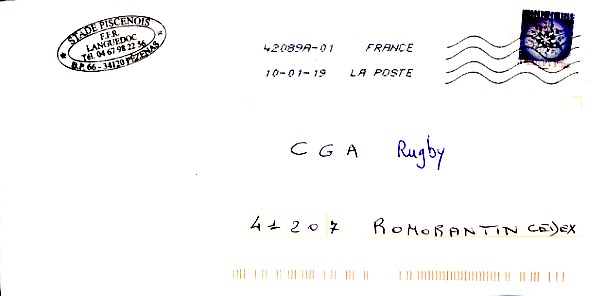 STADE PISCENOIS
F.F.R.
LANGUEDOC
Tél. 04 67 98 22 56
B.P. 66 - 34120 PÉZENAS
42089A-01 FRANCE
10-01-19 LA POSTE
C G A Rugby
41207 ROMORANTIN CEDEX